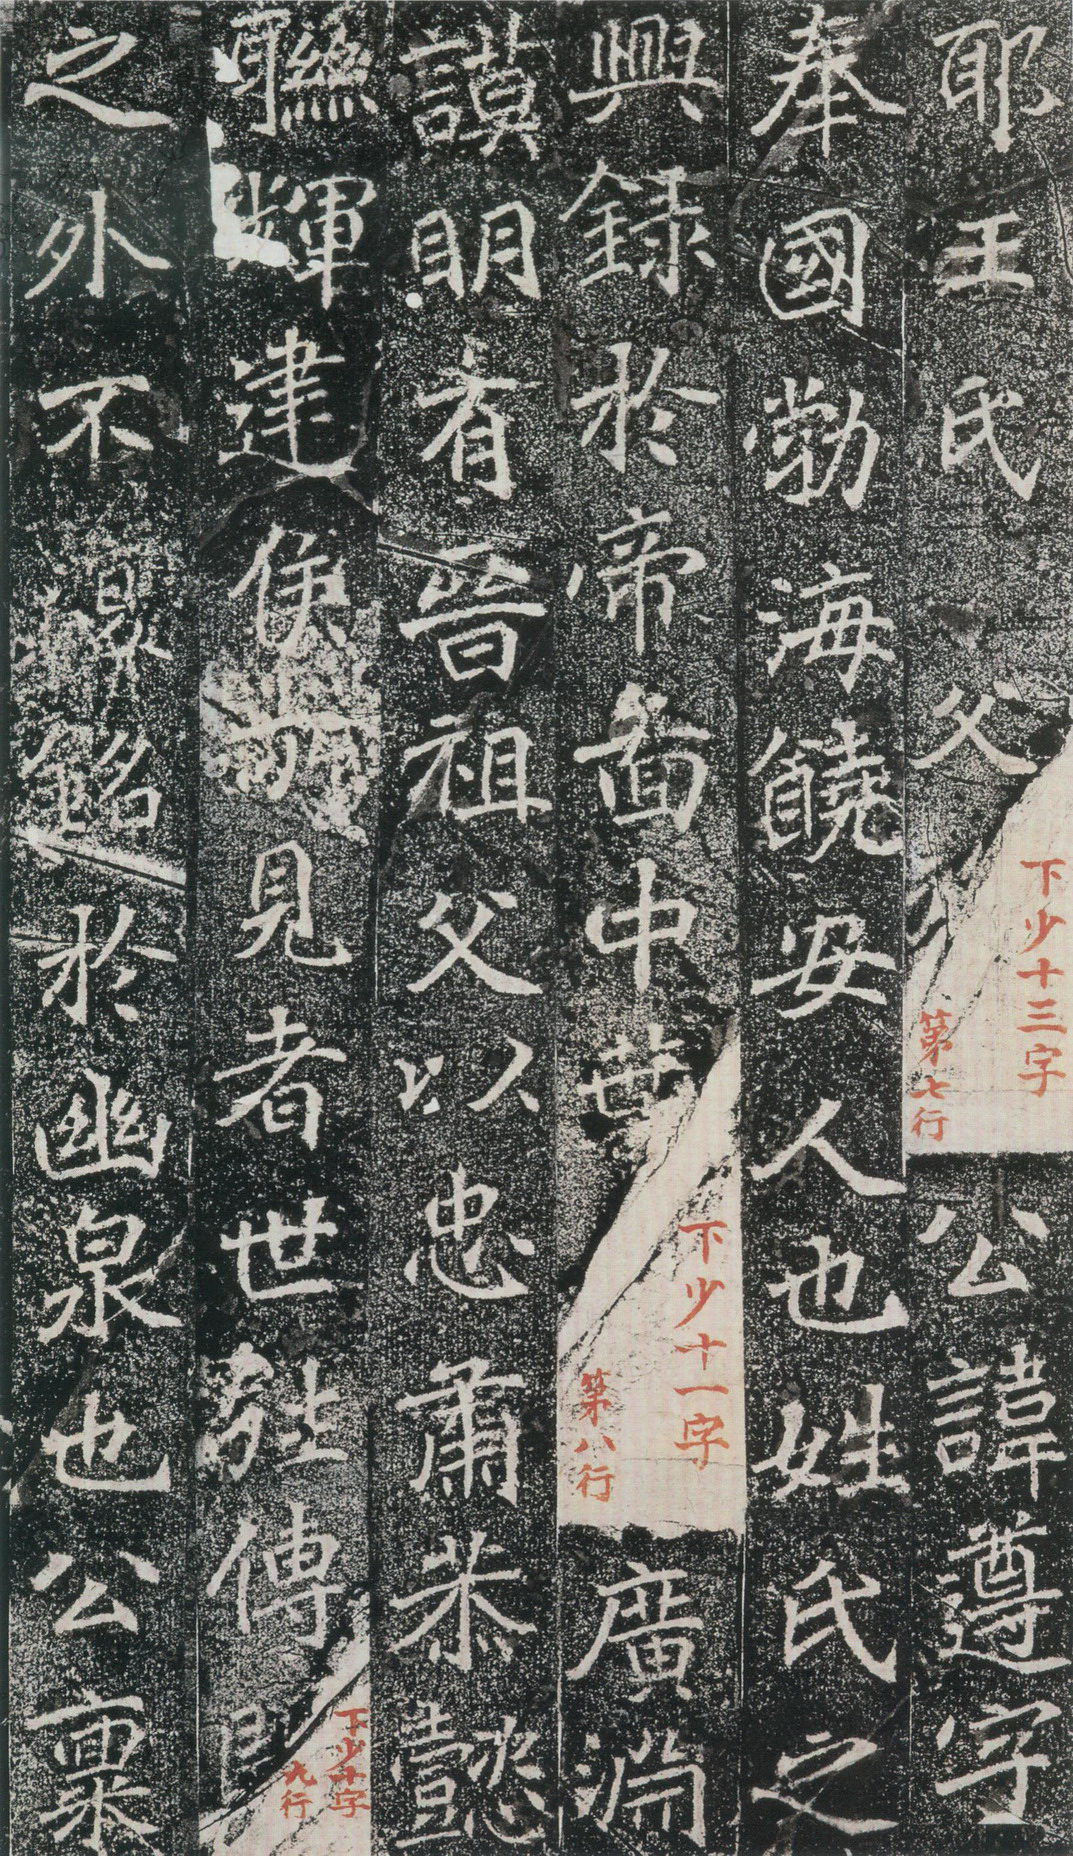 耶王氏父
下少十三字
第七行
公諱遵字
奉國勃海饒安人也姓氏之
興録於帝啚中世
下少十一字
第八行
廣淵
謨明有晉祖父以忠肅恭懿
聯輝建侯見者世傳
下少十字
九行
之外不銘於幽泉也公禀